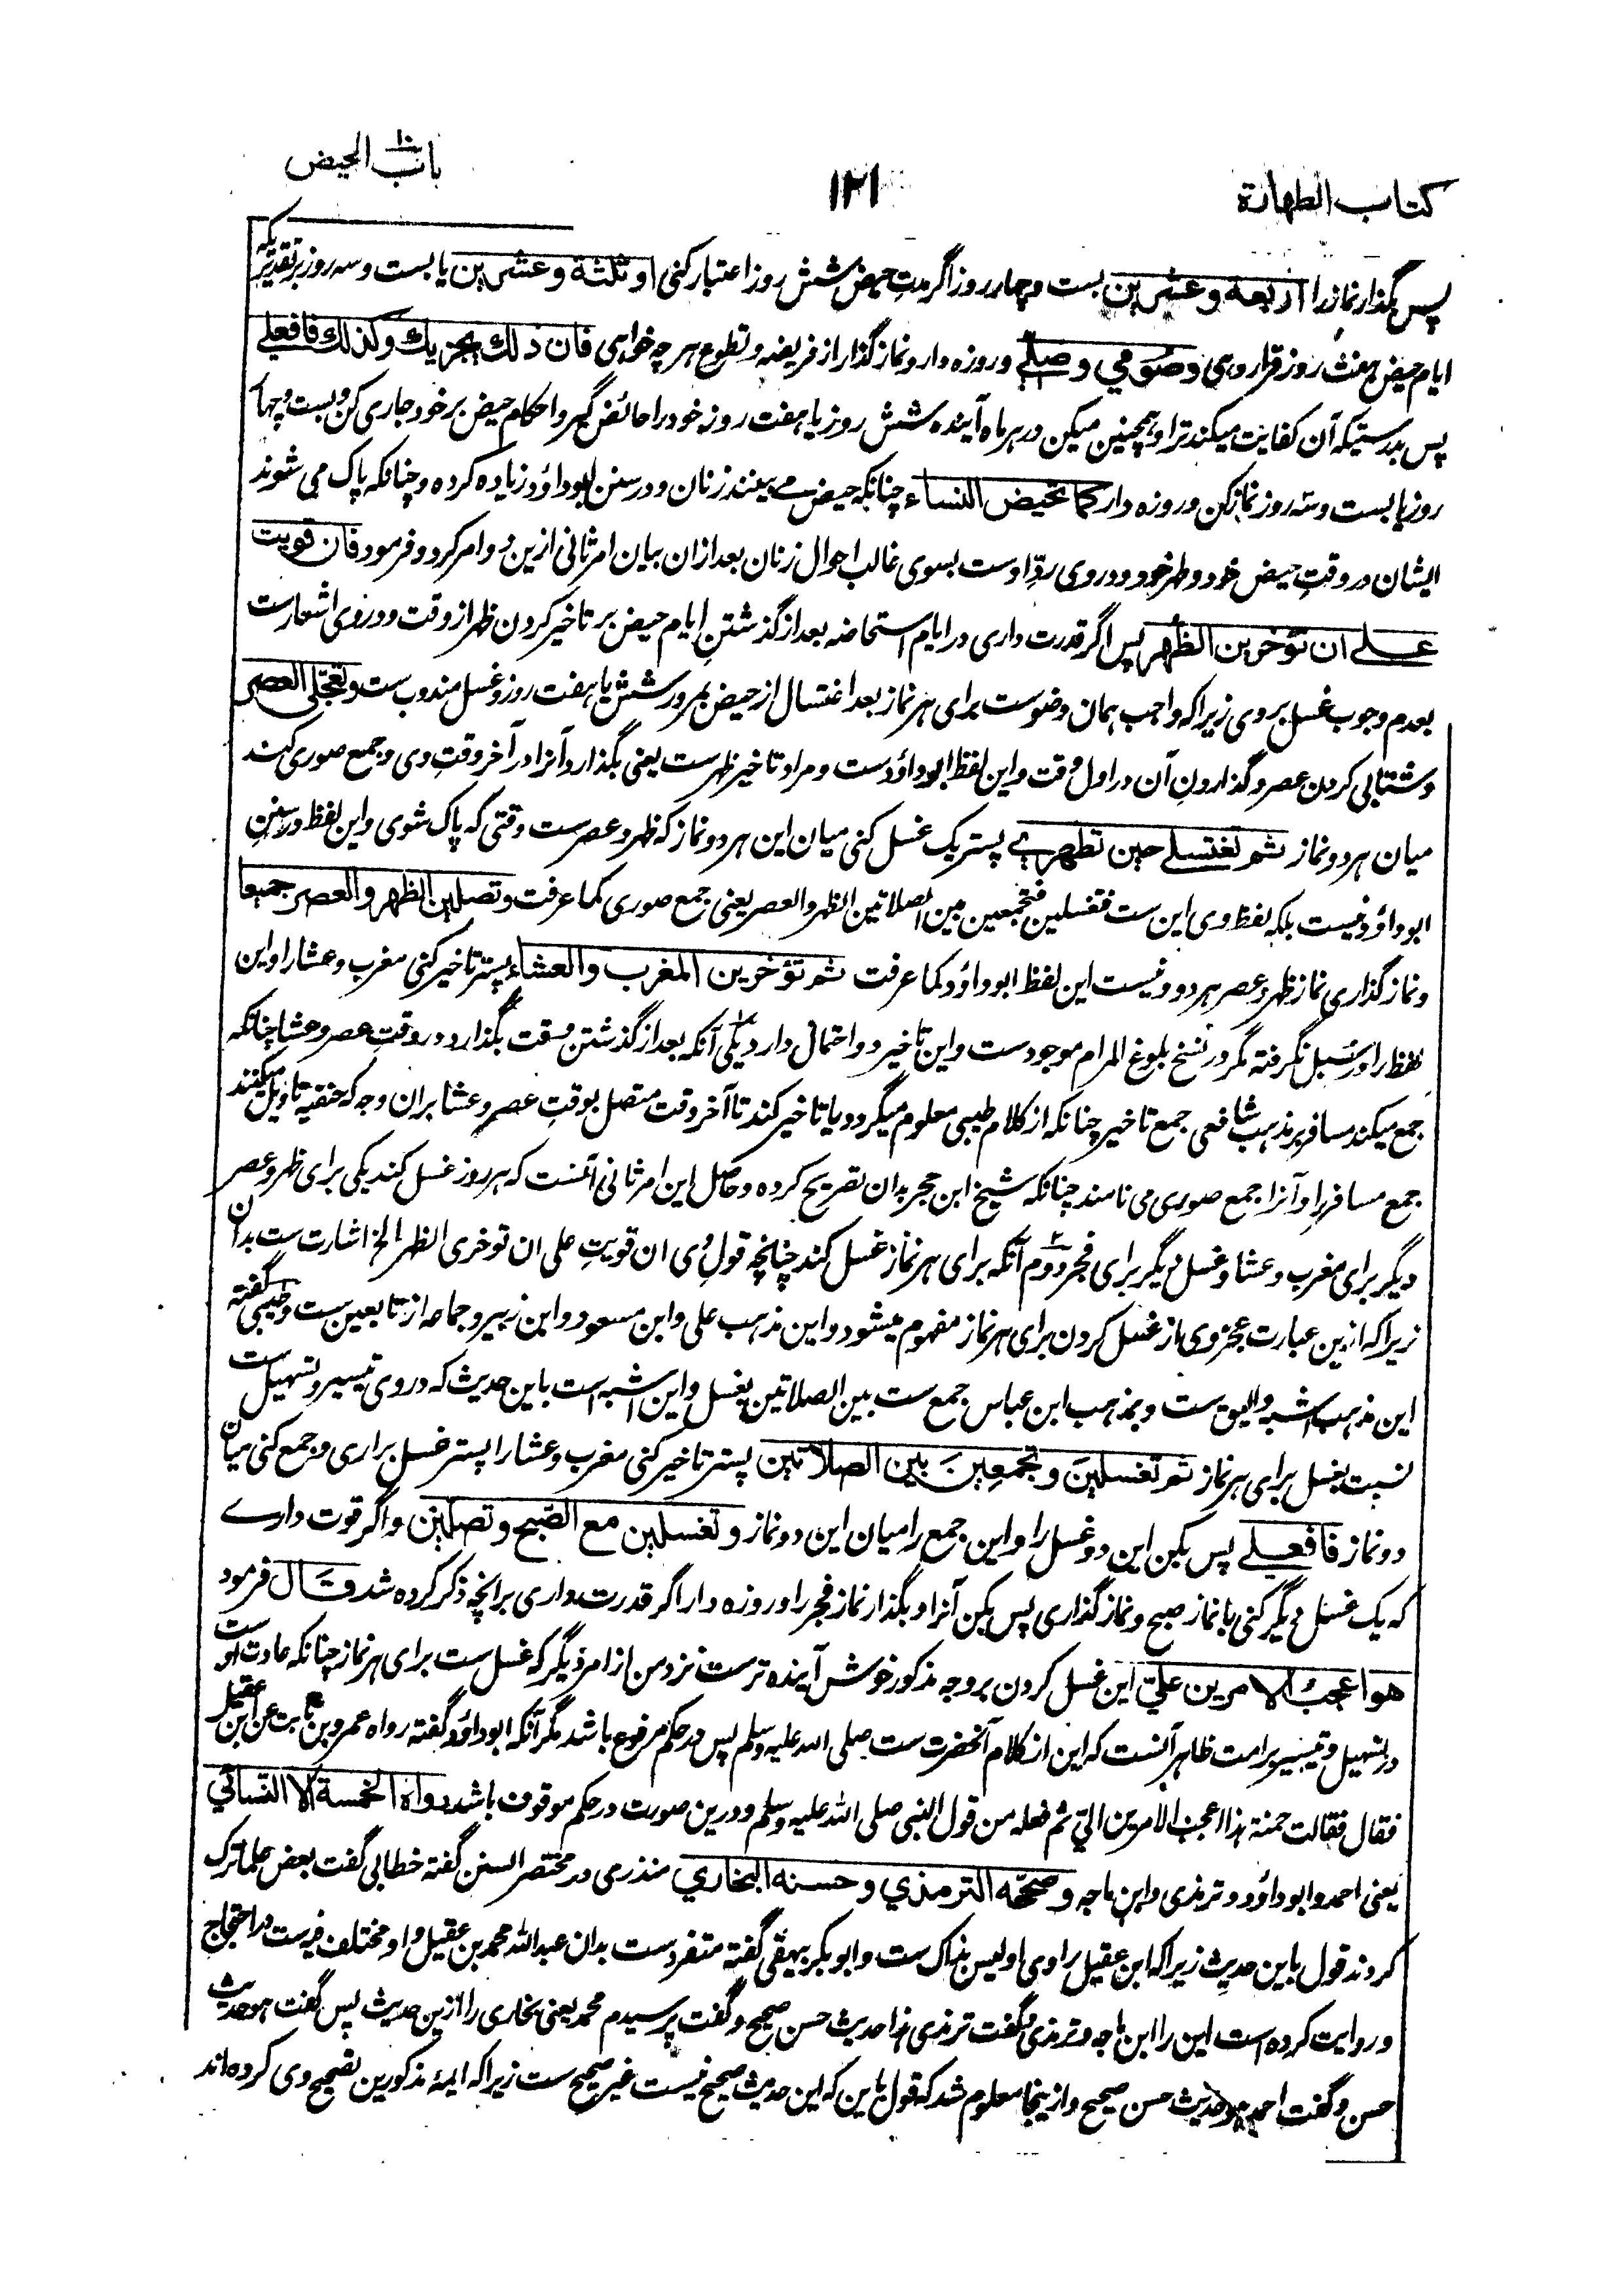 كتاب الطهارة
١٢١
باب الحيض
پس بگذار نماز را اربعة وعشرين بست وچهار روز اگر مدت حيض شش روز اعتبار كنى او ثلثة وعشرين يا بست وسه روز بر تقديريكه
ايام حيض هفت روز قرار دهى وصومي وصلي وروزه دار ونماز گذار از فريضه وتطوع هر چه خواهى فان ذلك يجزيك وكذلك فافعلي
پس بدرستيكه آن كفايت ميكند ترا وهمچنين ميكن در هر ماه آينده شش روز يا هفت روزه خود را حائض گير واحكام حيض بر خود جارى كن وبست وچهار
روز يا بست وسه روز نماز كن وروزه دار كما تحيض النساء چنانكه حيض مے بينند زنان ودر سنن ابوداؤد زياده كرده وچنانكه پاك مى شوند
ايشان در وقت حيض خود وطهر خود ودروى ردّ اوست بسوى غالب احوال زنان بعد ازان بيان امر ثانى ازين دو امر كرد وفرمود فان قويت
على ان تؤخرين الظهر پس اگر قدرت دارى در ايام استحاضه بعد از گذشتن ايام حيض بر تاخير كردن ظهر از وقت ودروى اشعارست
بعدم وجوب غسل بروى زيرا كه واجب همان وضوست براى هر نماز بعد اغتسال از حيض بمرور شش يا هفت روز وغسل مندوب ست وتعجلى العصر
وشتابى كردن عصر وگذاردن آن در اول وقت واين لفظ ابوداؤدست ومراد تاخير ظهرست يعنى بگذارد آنرا در آخر وقت وى وجمع صورى كند
ميان هر دو نماز ثم تغتسلے حين تطهرے پستر يك غسل كنى ميان اين هر دو نماز كه ظهر وعصرست وقتى كه پاك شوى واين لفظ در سنن
ابوداؤد نيست بلكه لفظ وى اين ست فتغسلين فتجمعين بين الصلاتين الظهر والعصر يعنى جمع صورى كما عرفت وتصلين الظهر والعصر جميعا
ونماز گذارى نماز ظهر وعصر هر دو ونيست اين لفظ ابوداؤد كما عرفت ثم تؤخرين المغرب والعشاء پستر تاخير كنى مغرب وعشا را واين
لفظ را در سبل نگرفته مگر در نسخ بلوغ المرام موجودست واين تاخير دو احتمال دارد يكى آنكه بعد از گذشتن وقت بگذارد در وقت عصر وعشا چنانكه
جمع ميكند مسافر بر مذهب شافعى جمع تاخير چنانكه از كلام طيبى معلوم ميگردد يا تاخير كند تا آخر وقت متصل بوقت عصر وعشا بران وجه كه حنفيه تاويل ميكنند
جمع مسافر را وآنرا جمع صورى مى نامند چنانكه شيخ ابن حجر بدان تصريح كرده وحاصل اين امر ثانى آنست كه هر روز غسل كند يكى براى ظهر وعصر
ديگر براى مغرب وعشا وغسل ديگر براى فجر دوم آنكه براى هر نماز غسل كند چنانچه قول وى ان قويت على ان توخرى الظهر الخ اشارت ست بدان
زيرا كه ازين عبارت عجز وى از غسل كردن براى هر نماز مفهوم ميشود واين مذهب على وابن مسعود وابن زبير وجماعه از تابعين ست وطيبى گفته
اين مذهب اشبه واليق ست ومذهب ابن عباس جمع ست بين الصلاتين بغسل واين اشبه است باين حديث كه دروى تيسير وتسهيل ست
نسبت بغسل براى هر نماز ثم تغسلين وتجمعين بين الصلاتين پستر تاخير كنى مغرب وعشا را پستر غسل برارى وجمع كنى ميان
دو نماز فافعلے پس بكن اين دو غسل را واين جمع را ميان اين دو نماز وتغسلين مع الصبح وتصلين واگر قوت دارے
كه يك غسل ديگر كنى با نماز صبح ونماز گذارى پس بكن آنرا وبگذار نماز فجر را وروزه دار اگر قدرت دارى برانچه ذكر كرده شد قال فرمود
هو اعجب الامرين علي اين غسل كردن بر وجه مذكور خوش آينده ترست نزد من از امر ديگر كه غسل ست براى هر نماز چنانكه عادت اوست
در تسهيل وتيسير بر امت ظاهر آنست كه اين از كلام آنحضرت ست صلى الله عليه وسلم پس در حكم مرفوع باشد مگر آنكه ابوداؤد گفته رواه عمرو بن ثابت عن ابن عقيل
فقال فقالت حمنة هذا اعجب الامرين الي ثم فعله من قول النبى صلى الله عليه وسلم ودرين صورت در حكم موقوف باشد رواه الخمسة الا النسائي
يعنى احمد وابوداؤد وترمذى وابن ماجه وصححه الترمذي وحسنه البخاري منذرى در مختصر السنن گفته خطابى گفت بعض علما ترك
كردند قول باين حديث زيرا كه ابن عقيل راوى او ليس بذاك ست وابوبكر بيهقى گفته متفردست بدان عبدالله محمد بن عقيل واو مختلف فيه ست در احتجاج
وروايت كرده است اين را ابن ماجه وترمذى وگفت ترمذى هذا حديث حسن صحيح وگفت پرسيدم محمد يعنى بخارى را ازين حديث پس گفت هو حديث
حسن وگفت احمد هو حديث حسن صحيح وازينجا معلوم شد كه قول باين كه اين حديث صحيح نيست غير صحيح ست زيرا كه ايمۀ مذكورين تصحيح وى كرده اند